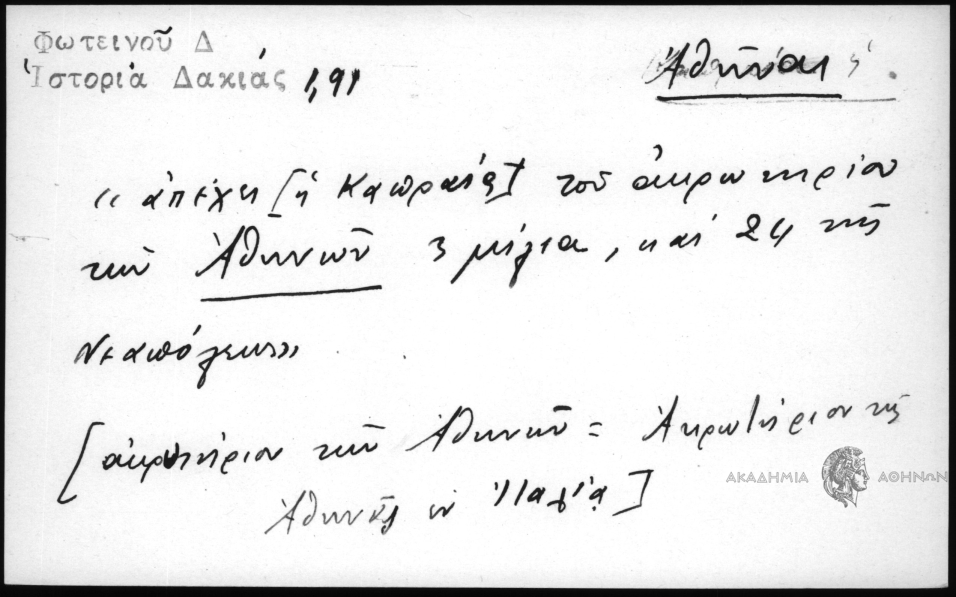 Φωτεινοῦ Δ
Ἱστορία Δακίας 1,91
Ἀθῆναι
«ἀπέχει [ἡ Καπραία] τοῦ ἀκρωτηρίου
τῶν Ἀθηνῶν 3 μίλια, καί 24 τῆς
Νεαπόλεως»
[ἀκρωτήριον τῶν Ἀθηνῶν = Ἀκρωτήριον τῆς
Ἀθηνᾶς ἐν Ἰταλίᾳ]
ΑΚΑΔΗΜΙΑ ΑΘΗΝΩΝ